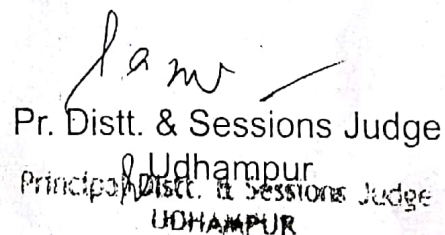 Pr. Distt. & Sessions Judge
Udhampur
Principal Distt. & Sessions Judge
UDHAMPUR